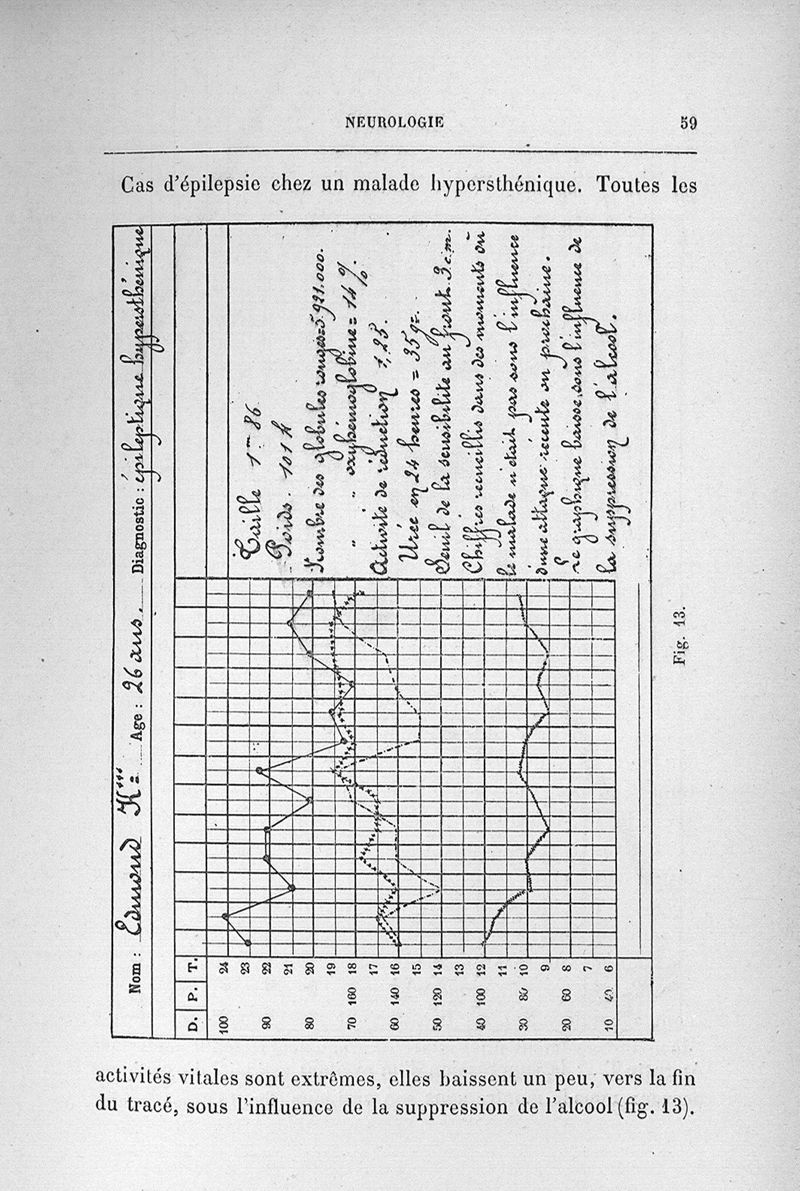 NEUROLOGIE 59
Cas d'épilepsie chez un malade hypersthénique. Toutes les
Nom : Edmond K... Age : 26 ans. Diagnostic : épileptique hypersthénique
Taille 1m 86
Poids. 101 k
Nombre des globules rouges = 5.921.000.
" " oxyhémoglobine = 14 %.
Activité de réduction 1,25.
Urée en 24 heures = 35 gr.
Seuil de la sensibilité au front. 3 c.m.
Chiffres recueillis dans des moments où
le malade n'était pas sous l'influence
d'une attaque récente ou prochaine.
Le graphique baisse, sous l'influence de
la suppression de l'alcool.
D. P. T.
100 24
23
90 22
21
80 20
19
70 160 18
17
60 140 16
15
50 120 14
13
40 100 12
11
30 80 10
9
20 60 8
7
10 40 6
Fig. 13.
activités vitales sont extrêmes, elles baissent un peu, vers la fin
du tracé, sous l'influence de la suppression de l'alcool (fig. 13).